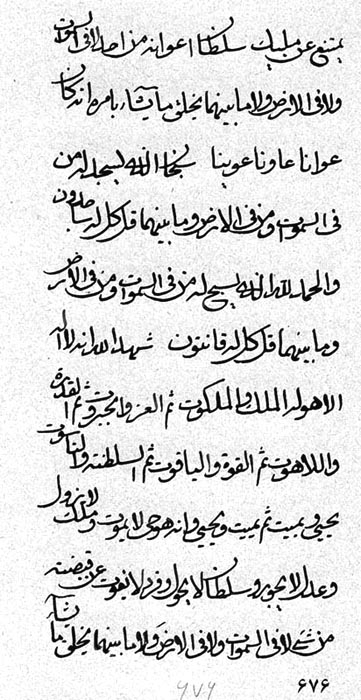 يمتنع عن مليك سلطان اعوانه من احد لا فى السموات
ولا فى الارض ولا ما بينهما يخلق ما يشاء بامره انه كان
عوانا عاونا عوينا سبحان الذى يسجد له من
فى السموات ومن فى الارض وما بينهما قل كل له ساجدون
والحمد لله الذى يسبح له من فى السموات ومن فى الارض
وما بينهما قل كل له قانتون شهد الله انه لا اله
الا هو له الملك والملكوت ثم العز والجبروت ثم القدرة
واللاهوت ثم القوة والياقوت ثم السلطنة والناسوت
يحيى ويميت ثم يميت ويحيى وانه هو حى لا يموت وملك لا يزول
وعدل لا يجور وسلطان لا يحول وفرد لا يفوت عن قبضته
من شئ لا فى السموات ولا فى الارض ولا ما بينهما يخلق ما يشاء
۶۷۶ ۶۷۶